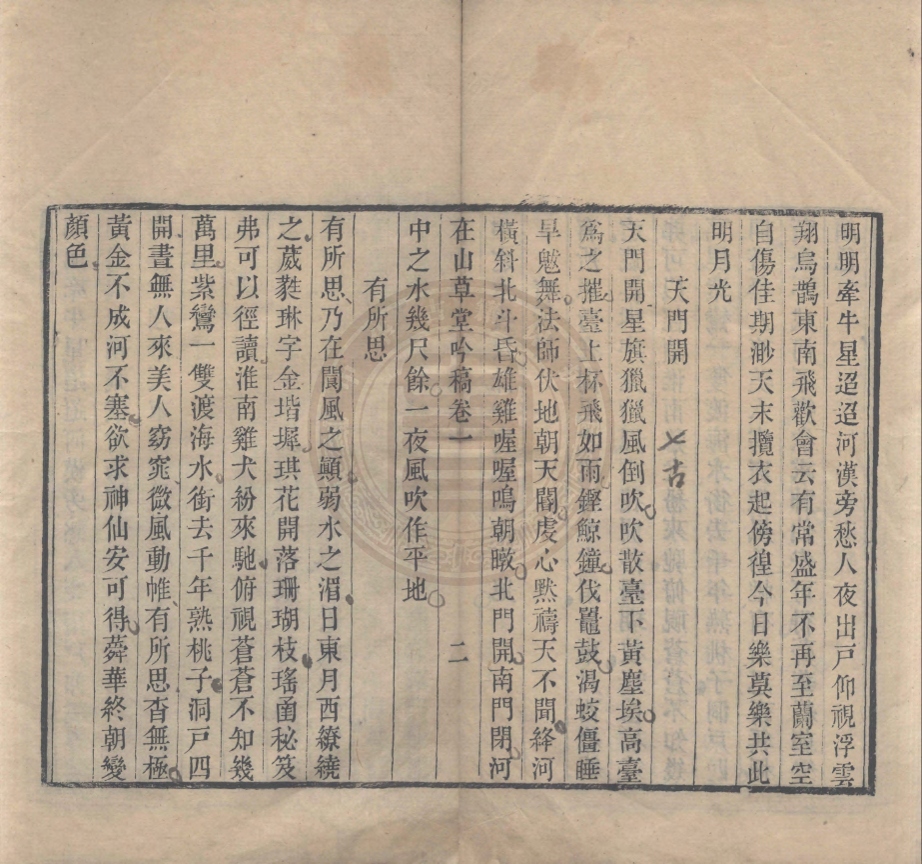 明明牽牛星迢迢河漢旁愁人夜出戸仰視浮雲
翔烏鵲東南飛歡會云有常盛年不再至蘭室空
自傷佳期渺天末攬衣起傍徨今日樂莫樂共此
明月光
天門開 七古
天門開星旗獵獵風倒吹吹散臺下黃塵埃高臺
爲之摧臺上杯飛如雨鏗鯨鐘伐鼉鼓渴蛟僵睡
旱魃舞法師伏地朝天閽虔心黙禱天不聞絳河
橫斜北斗昏雄雞喔喔鳴朝暾北門開南門閉河
在山草堂吟稿卷一 二
中之水幾尺餘一夜風吹作平地
有所思
有所思乃在閬風之顚弱水之湄日東月西繚繞
之葳蕤琳字金堦墀琪花開落珊瑚枝瑤函秘笈
弗可以徑讀淮南雞犬紛來馳俯視蒼蒼不知幾
萬里紫鸞一雙渡海水銜去千年熟桃子洞戸四
開晝無人來美人窈窕微風動帷有所思杳無極
黃金不成河不塞欲求神仙安可得蕣華終朝變
顏色